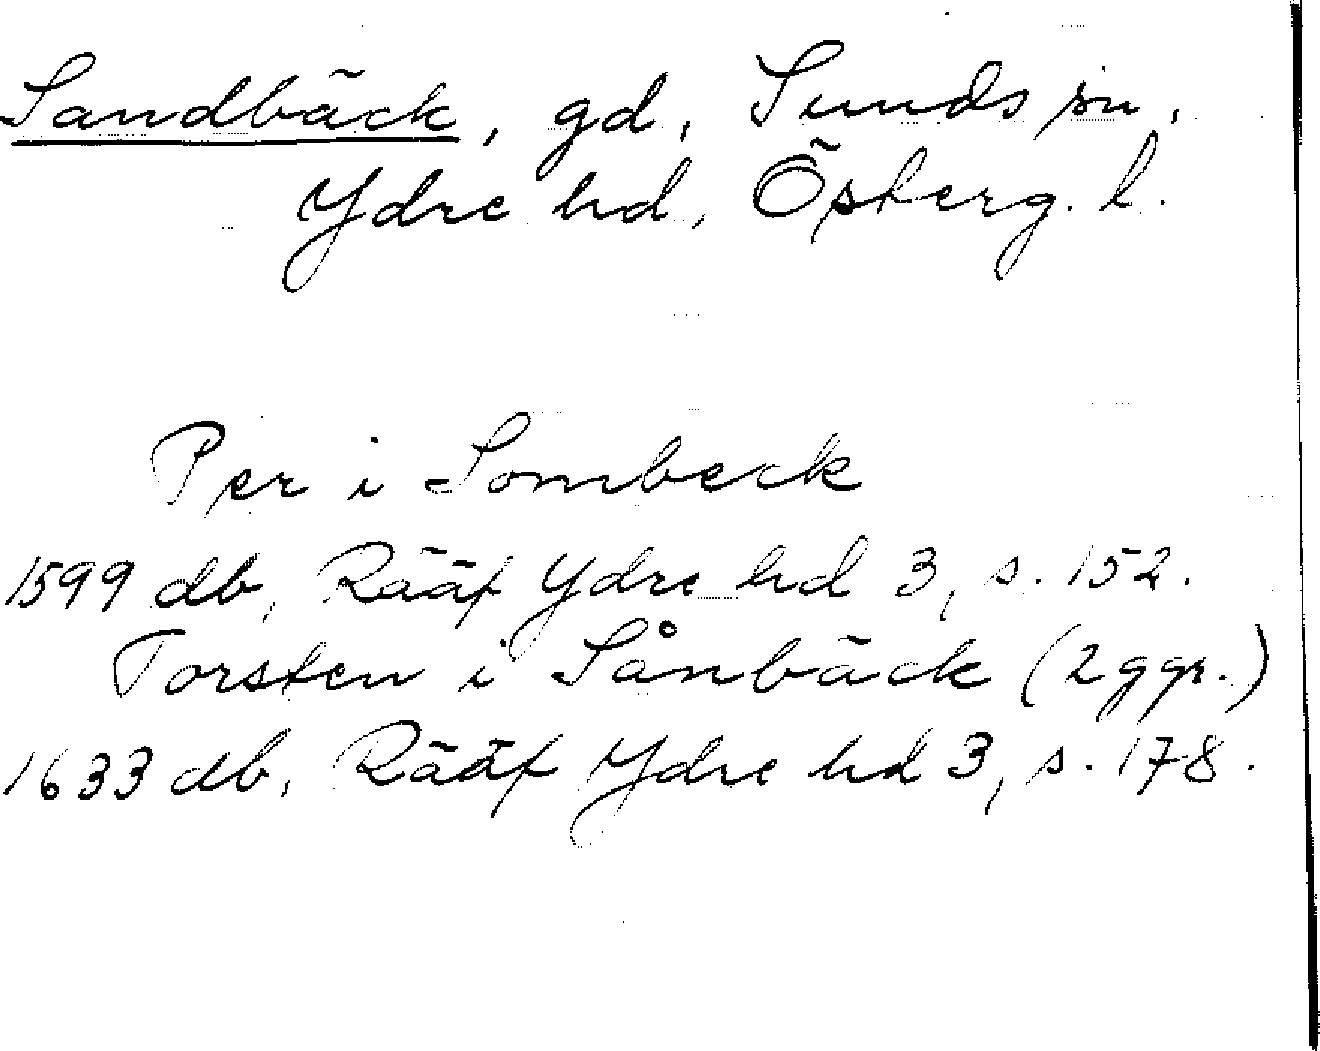 Sandbäck, gd, Sunds sn,
Ydre hd, Österg. l.
Per i Sombeck
1599 db, Rääf Ydre hd 3, s. 152.
Torsten i Sånbäck (2 ggr.)
1633 db, Rääf Ydre hd 3, s. 178.